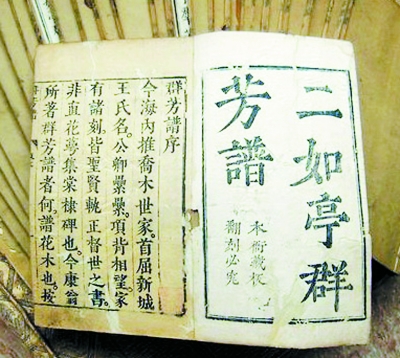 二如亭群
芳譜
本衙藏板
翻刻必究
群芳譜序
今海內推喬木世家。首屈新城
王氏名。公卿纍纍。項背相望。家
有諸刻。皆聖賢軌正督世之書。
非直花萼集棠棣碑也。今康翁
所著群芳譜者何。譜花木也。按